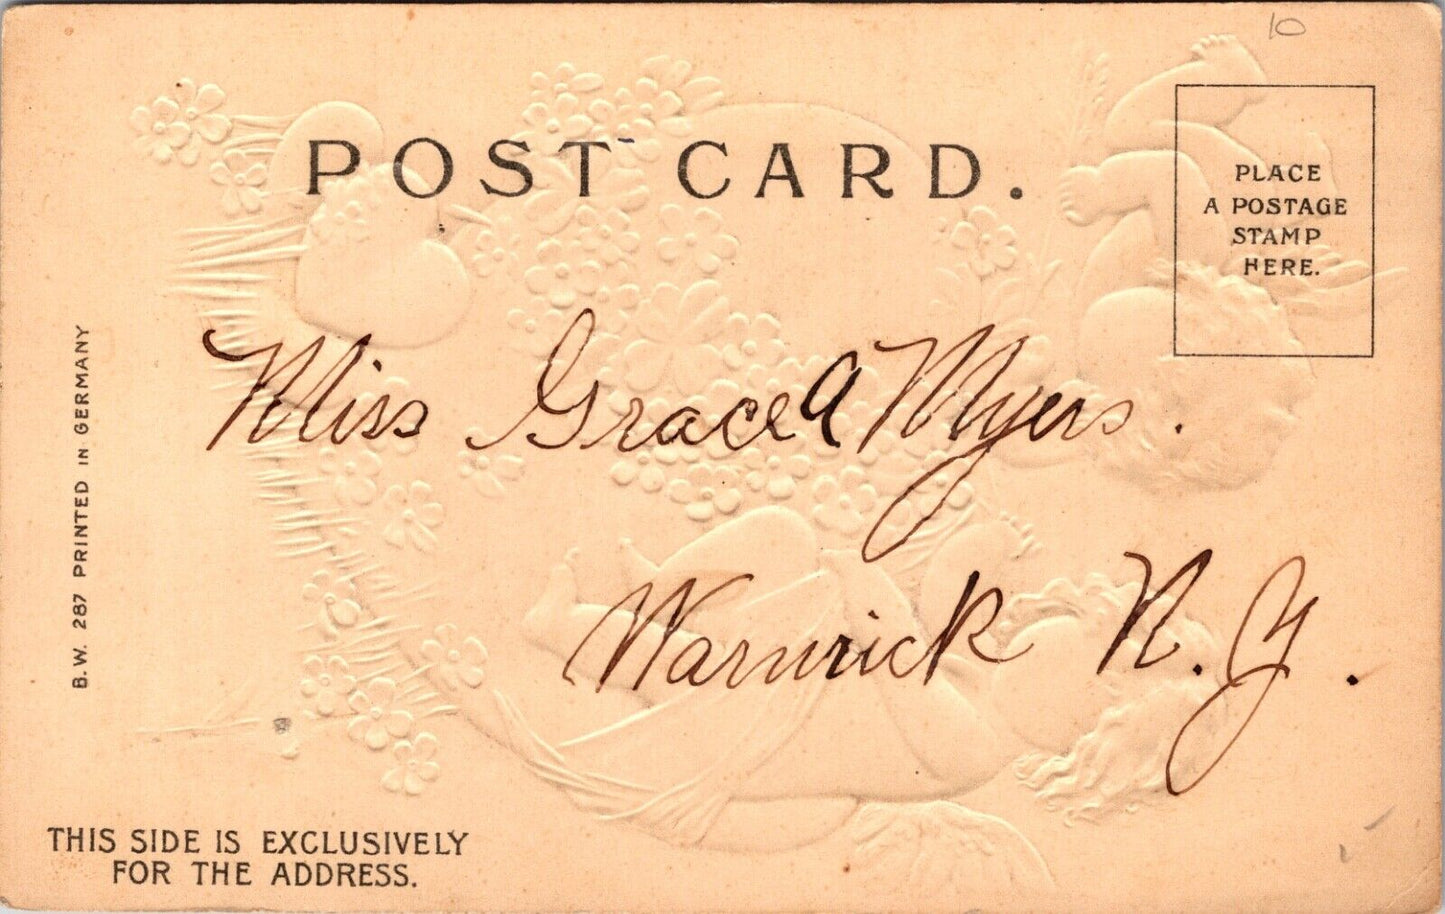 10
POST CARD.
PLACE
A POSTAGE
STAMP
HERE.
Miss Grace A Myers.
Warwick N.Y.
B.W. 287 PRINTED IN GERMANY
THIS SIDE IS EXCLUSIVELY
FOR THE ADDRESS.